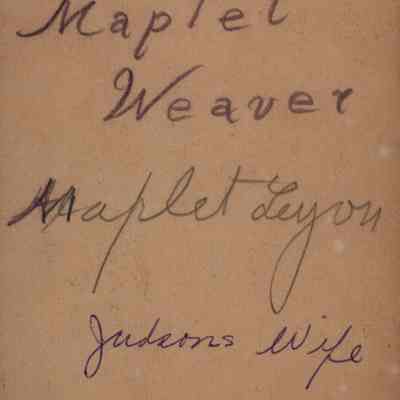 Maplet
Weaver
Maplet Leyon
Judsons Wife